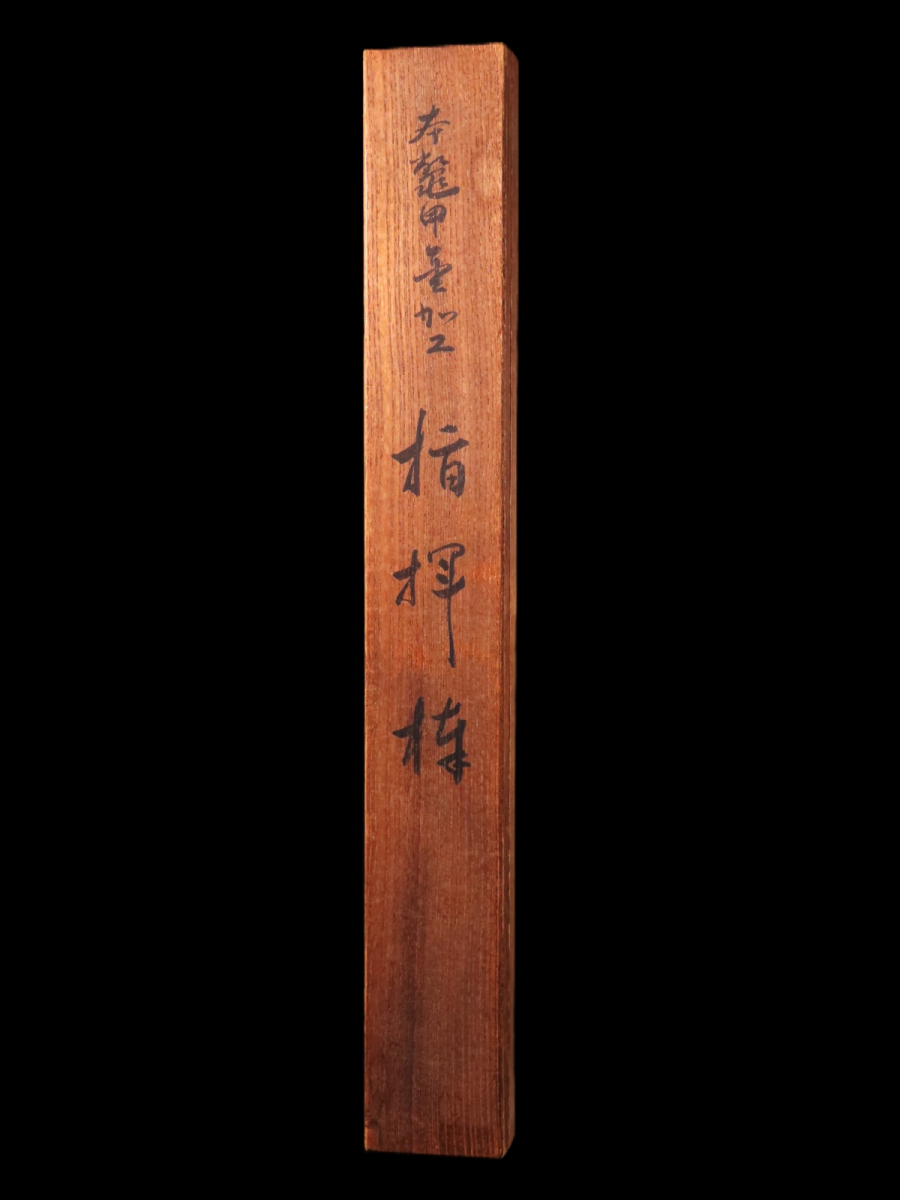 本鼈甲金加工 指揮棒